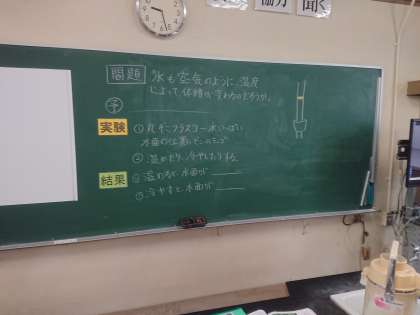 協力 聞く
問題 水も空気のように、温度
によって体積は変わるのだろうか。
予
実験 ①丸底フラスコ→水いっぱい
水面の位置に
②温めたり、冷やしたりする。
結果 ①温めると、水面が
②冷やすと、水面が